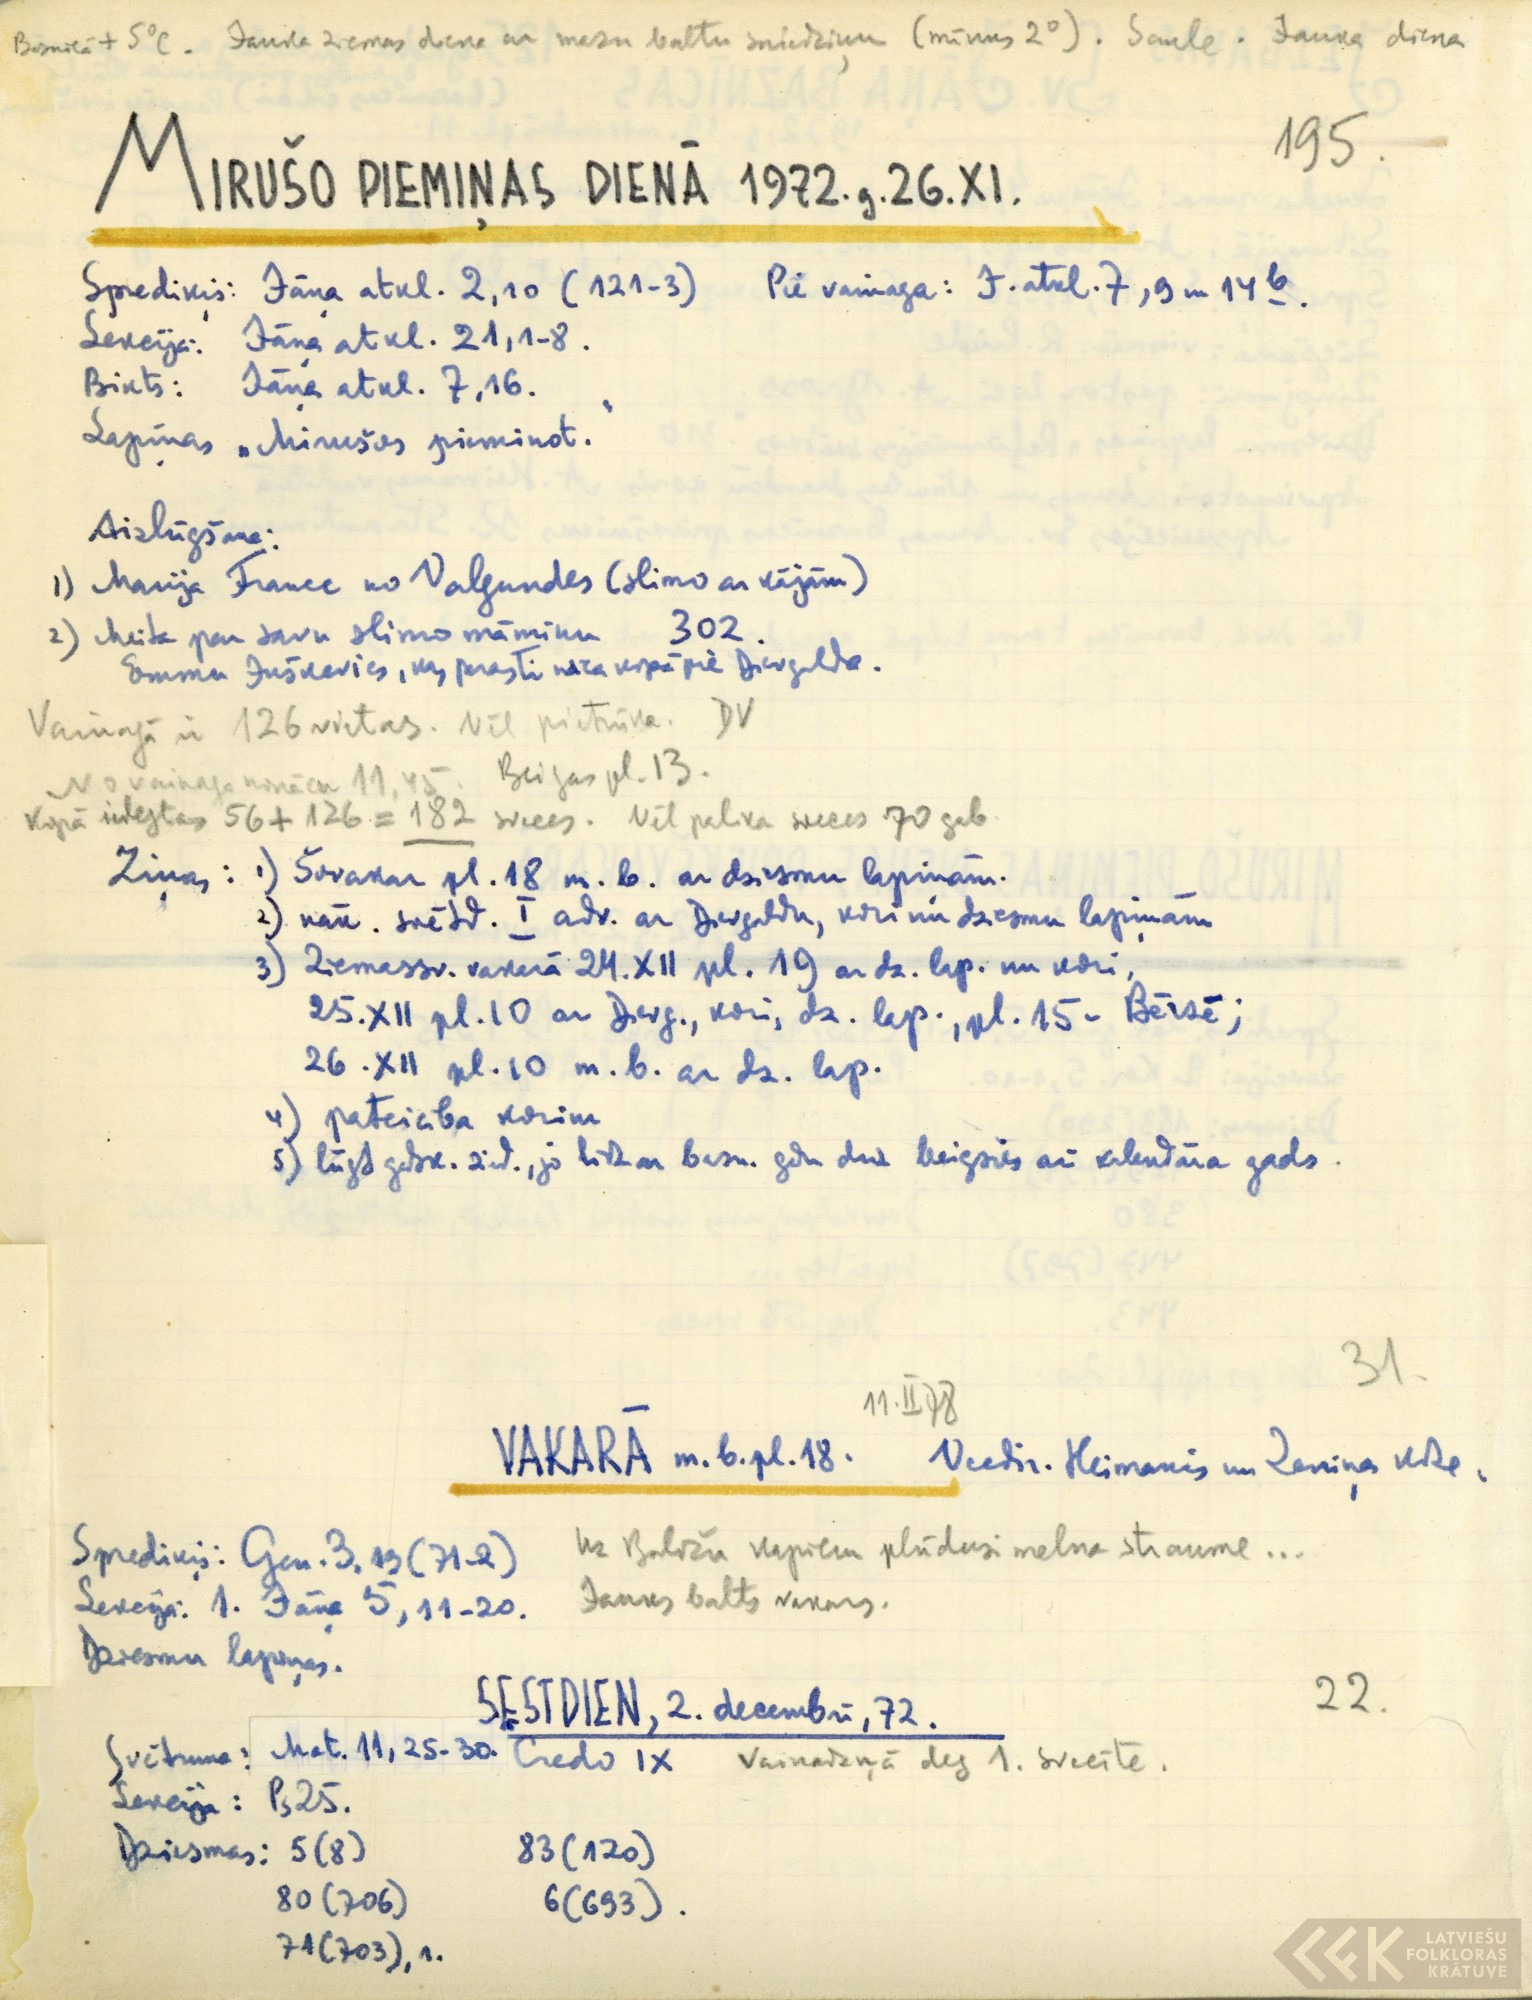 Baznīcā + 5°C. Jauka ziemas diena ar mazu baltu sniedziņu (mīnus 2°). Saule. Jauka diena
195.
MIRUŠO PIEMIŅAS DIENĀ 1972.g.26.XI.
Sprediķis: Jāņa atkl. 2,10 (121-3) Pie vainaga: J. atkl. 7,9 un 14b.
Lekcija: Jāņa atkl. 21,1-8.
Bikts: Jāņa atkl. 7,16.
Lapiņas „Mirušos pieminot."
Aizlūgšana:
1) Marija France no Valgundes (slimo ar kājām)
2) Meita par savu slimo māmiņu 302.
Emmu Juškevics, kas parasti nāca kopā pie Dievgalda.
Vainagā ir 126 vietas. Vēl pietrūka. DV
No vainaga nonācu 11,45. Beigas pl. 13.
Kopā iedegtas 56 + 126 = 182 sveces. Vēl palika sveces 70 gab.
Ziņas: 1) Šovakar pl. 18 m. b. ar dziesmu lapiņām.
2) nāk. svētd. I adv. ar Dievgaldu, kori un dziesmu lapiņām
3) Ziemassv. vakarā 24.XII pl. 19 ar dz. lap. un kori,
25.XII pl. 10 ar Dievg., kori, dz. lap., pl. 15 - Bērzē;
26.XII pl. 10 m. b. ar dz. lap.
4) pateicība korim
5) lūgt gadsk. zied., jo līdz ar bazn. gadu beigsies arī kalendāra gads.
31.
11.II 78
VAKARĀ m. b. pl. 18. Vecdir. Heimanis un Zeniņa kdze.
Sprediķis: Gen. 3,19 (71-2) Uz Baložu kapiem plūdusi melna straume...
Lekcija: 1. Jāņa 5,11-20. Jauks balts vakars.
Dziesmu lapiņas.
22.
SESTDIEN, 2. decembrī, 72.
Svētruna: Mat. 11, 25-30. Credo IX Vainadziņā deg 1. svecīte.
Lekcija: Ps 25.
Dziesmas: 5(8) 83(120)
80(706) 6(693).
71(703), 1.
LATVIEŠU
FOLKLORAS
KRĀTUVE